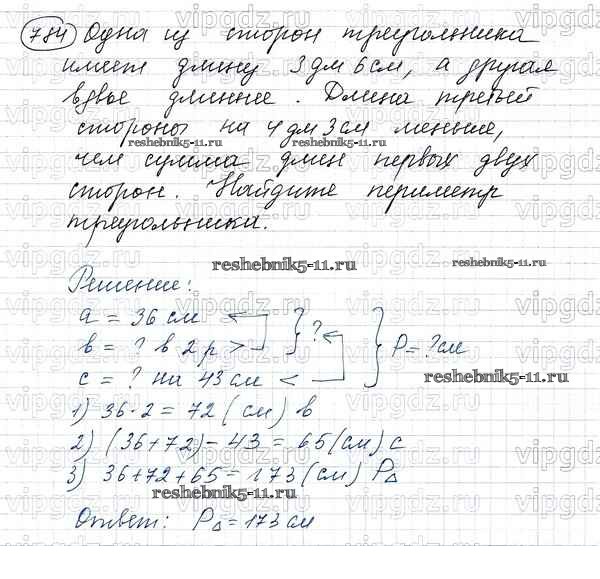 784 Одна из сторон треугольника
имеет длину 3 дм 6 см, а другая
вдвое длиннее. Длина третьей
стороны на 4 дм 3 см меньше,
reshebnik5-11.ru reshebnik5-11.ru
чем сумма длин первых двух
сторон. Найдите периметр
треугольника.
reshebnik5-11.ru reshebnik5-11.ru
Решение:
a = 36 см
в = ? в 2 р > } ? } P = ? см
c = ? на 43 см <
reshebnik5-11.ru
1) 36·2 = 72 (см) в
2) (36+72) - 43 = 65 (см) с
3) 36+72+65 = 173 (см) P△
reshebnik5-11.ru
Ответ: P△ = 173 см